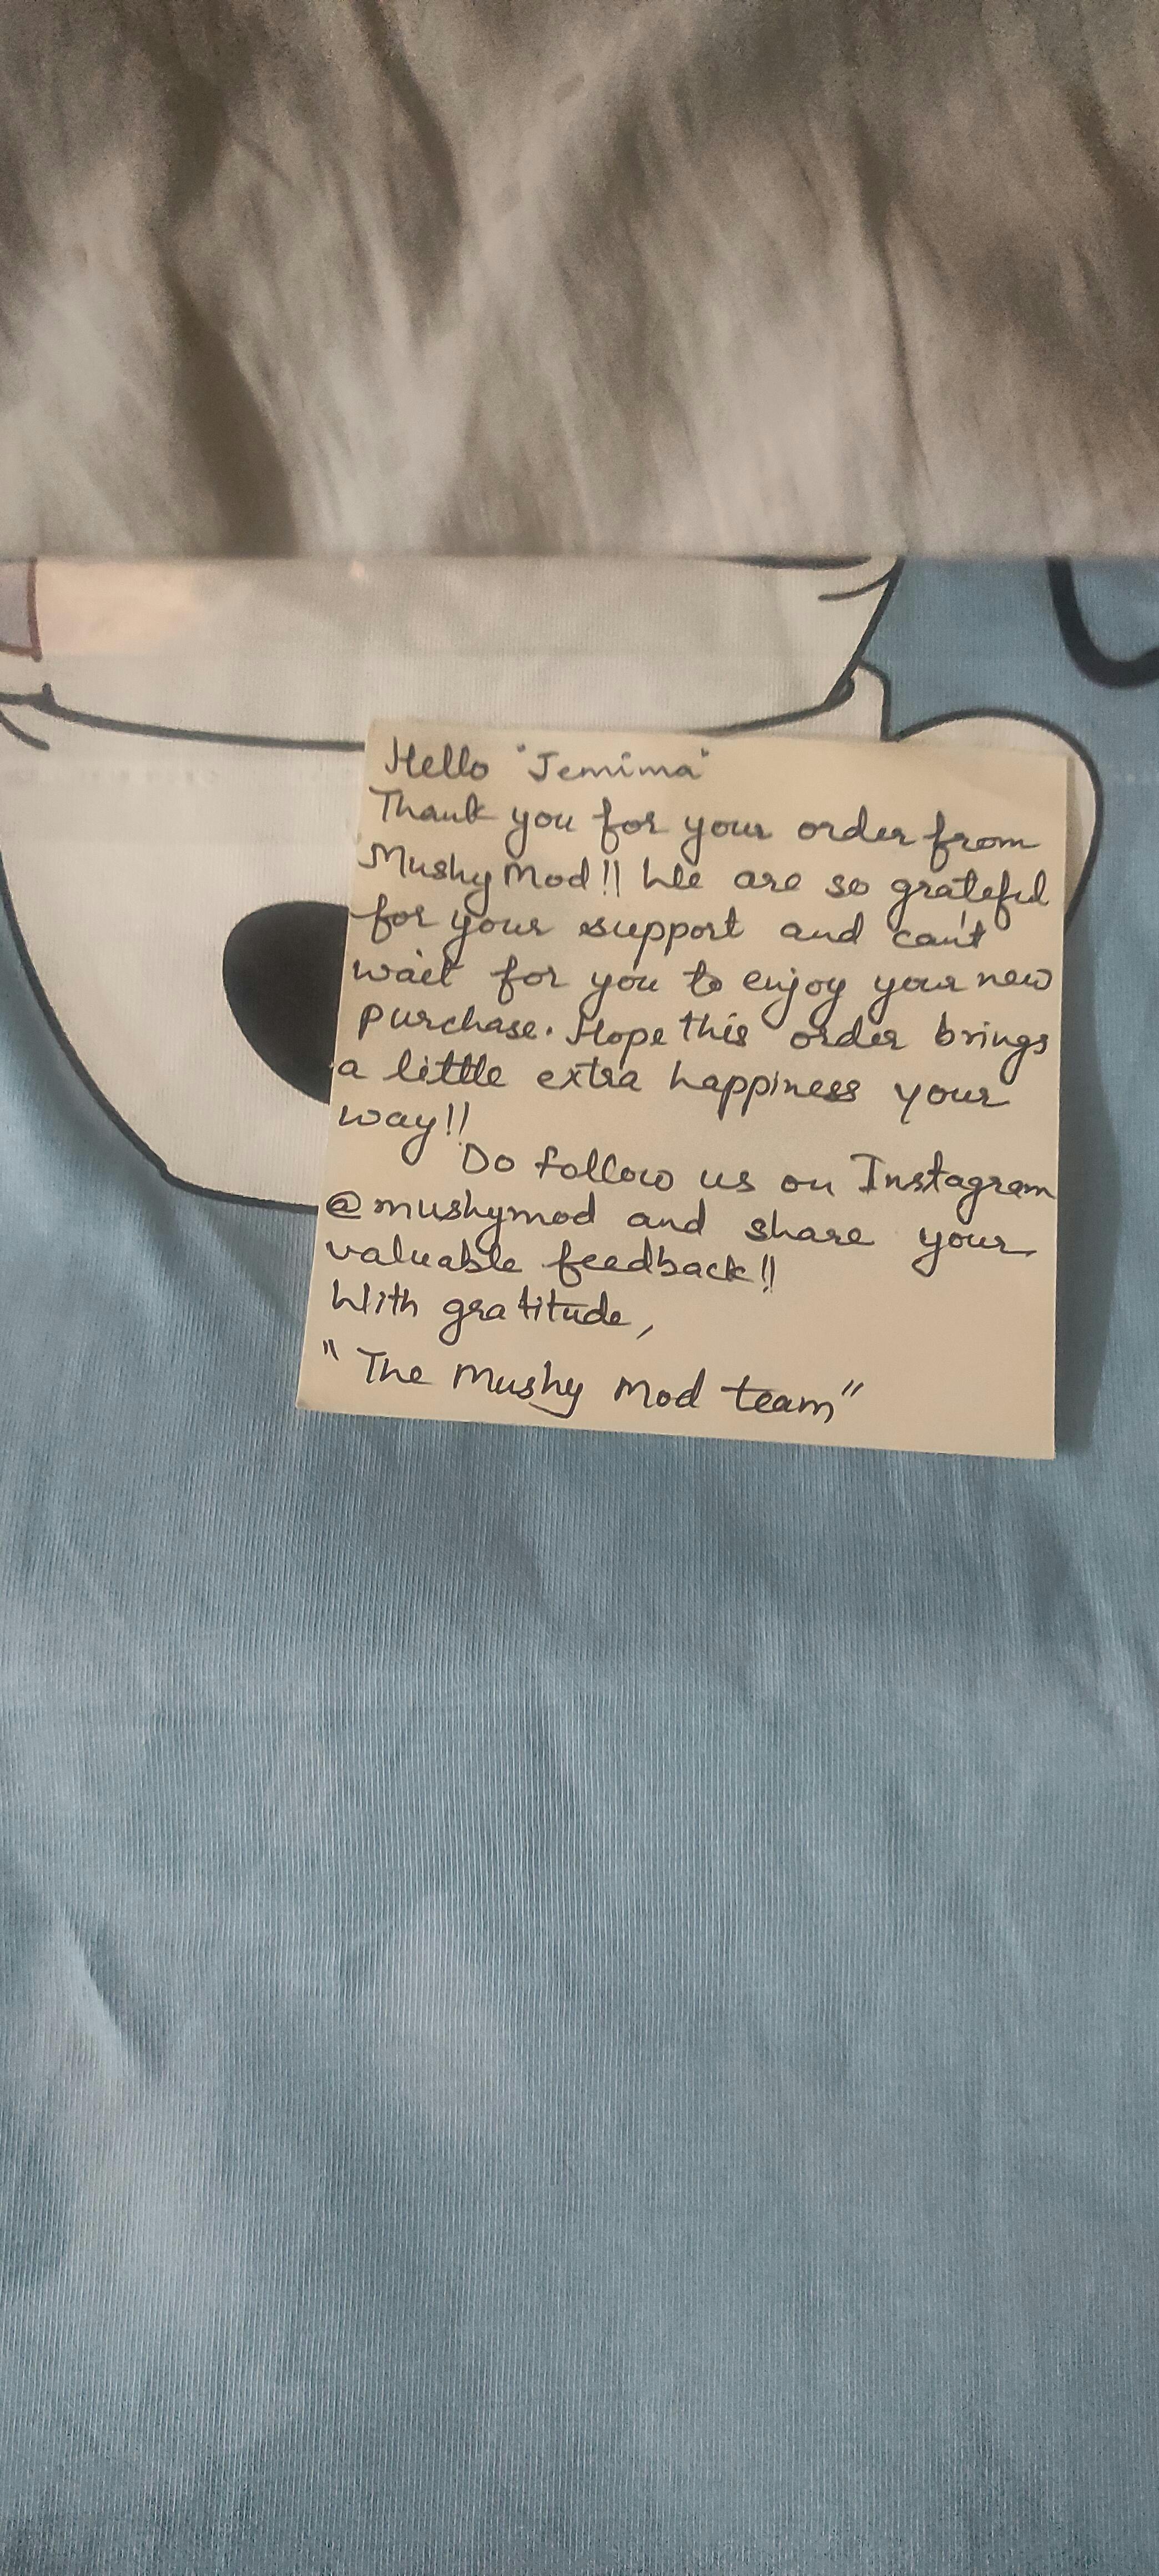 Hello "Jemima"
Thank you for your order from
Mushy Mod!! We are so grateful
for your support and can't
wait for you to enjoy your new
purchase. Hope this order brings
a little extra happiness your
way!!
Do follow us on Instagram
@mushymod and share your
valuable feedback!!
With gratitude,
"The Mushy Mod team"